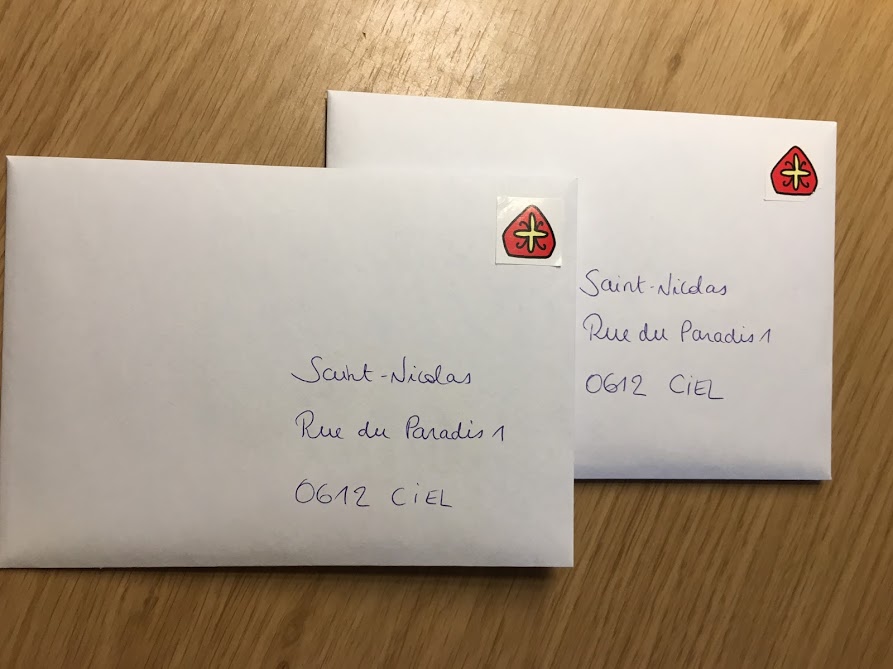 Saint-Nicolas
Rue du Paradis 1
0612 CiEL
Saint-Nicolas
Rue du Paradis 1
0612 CiEL